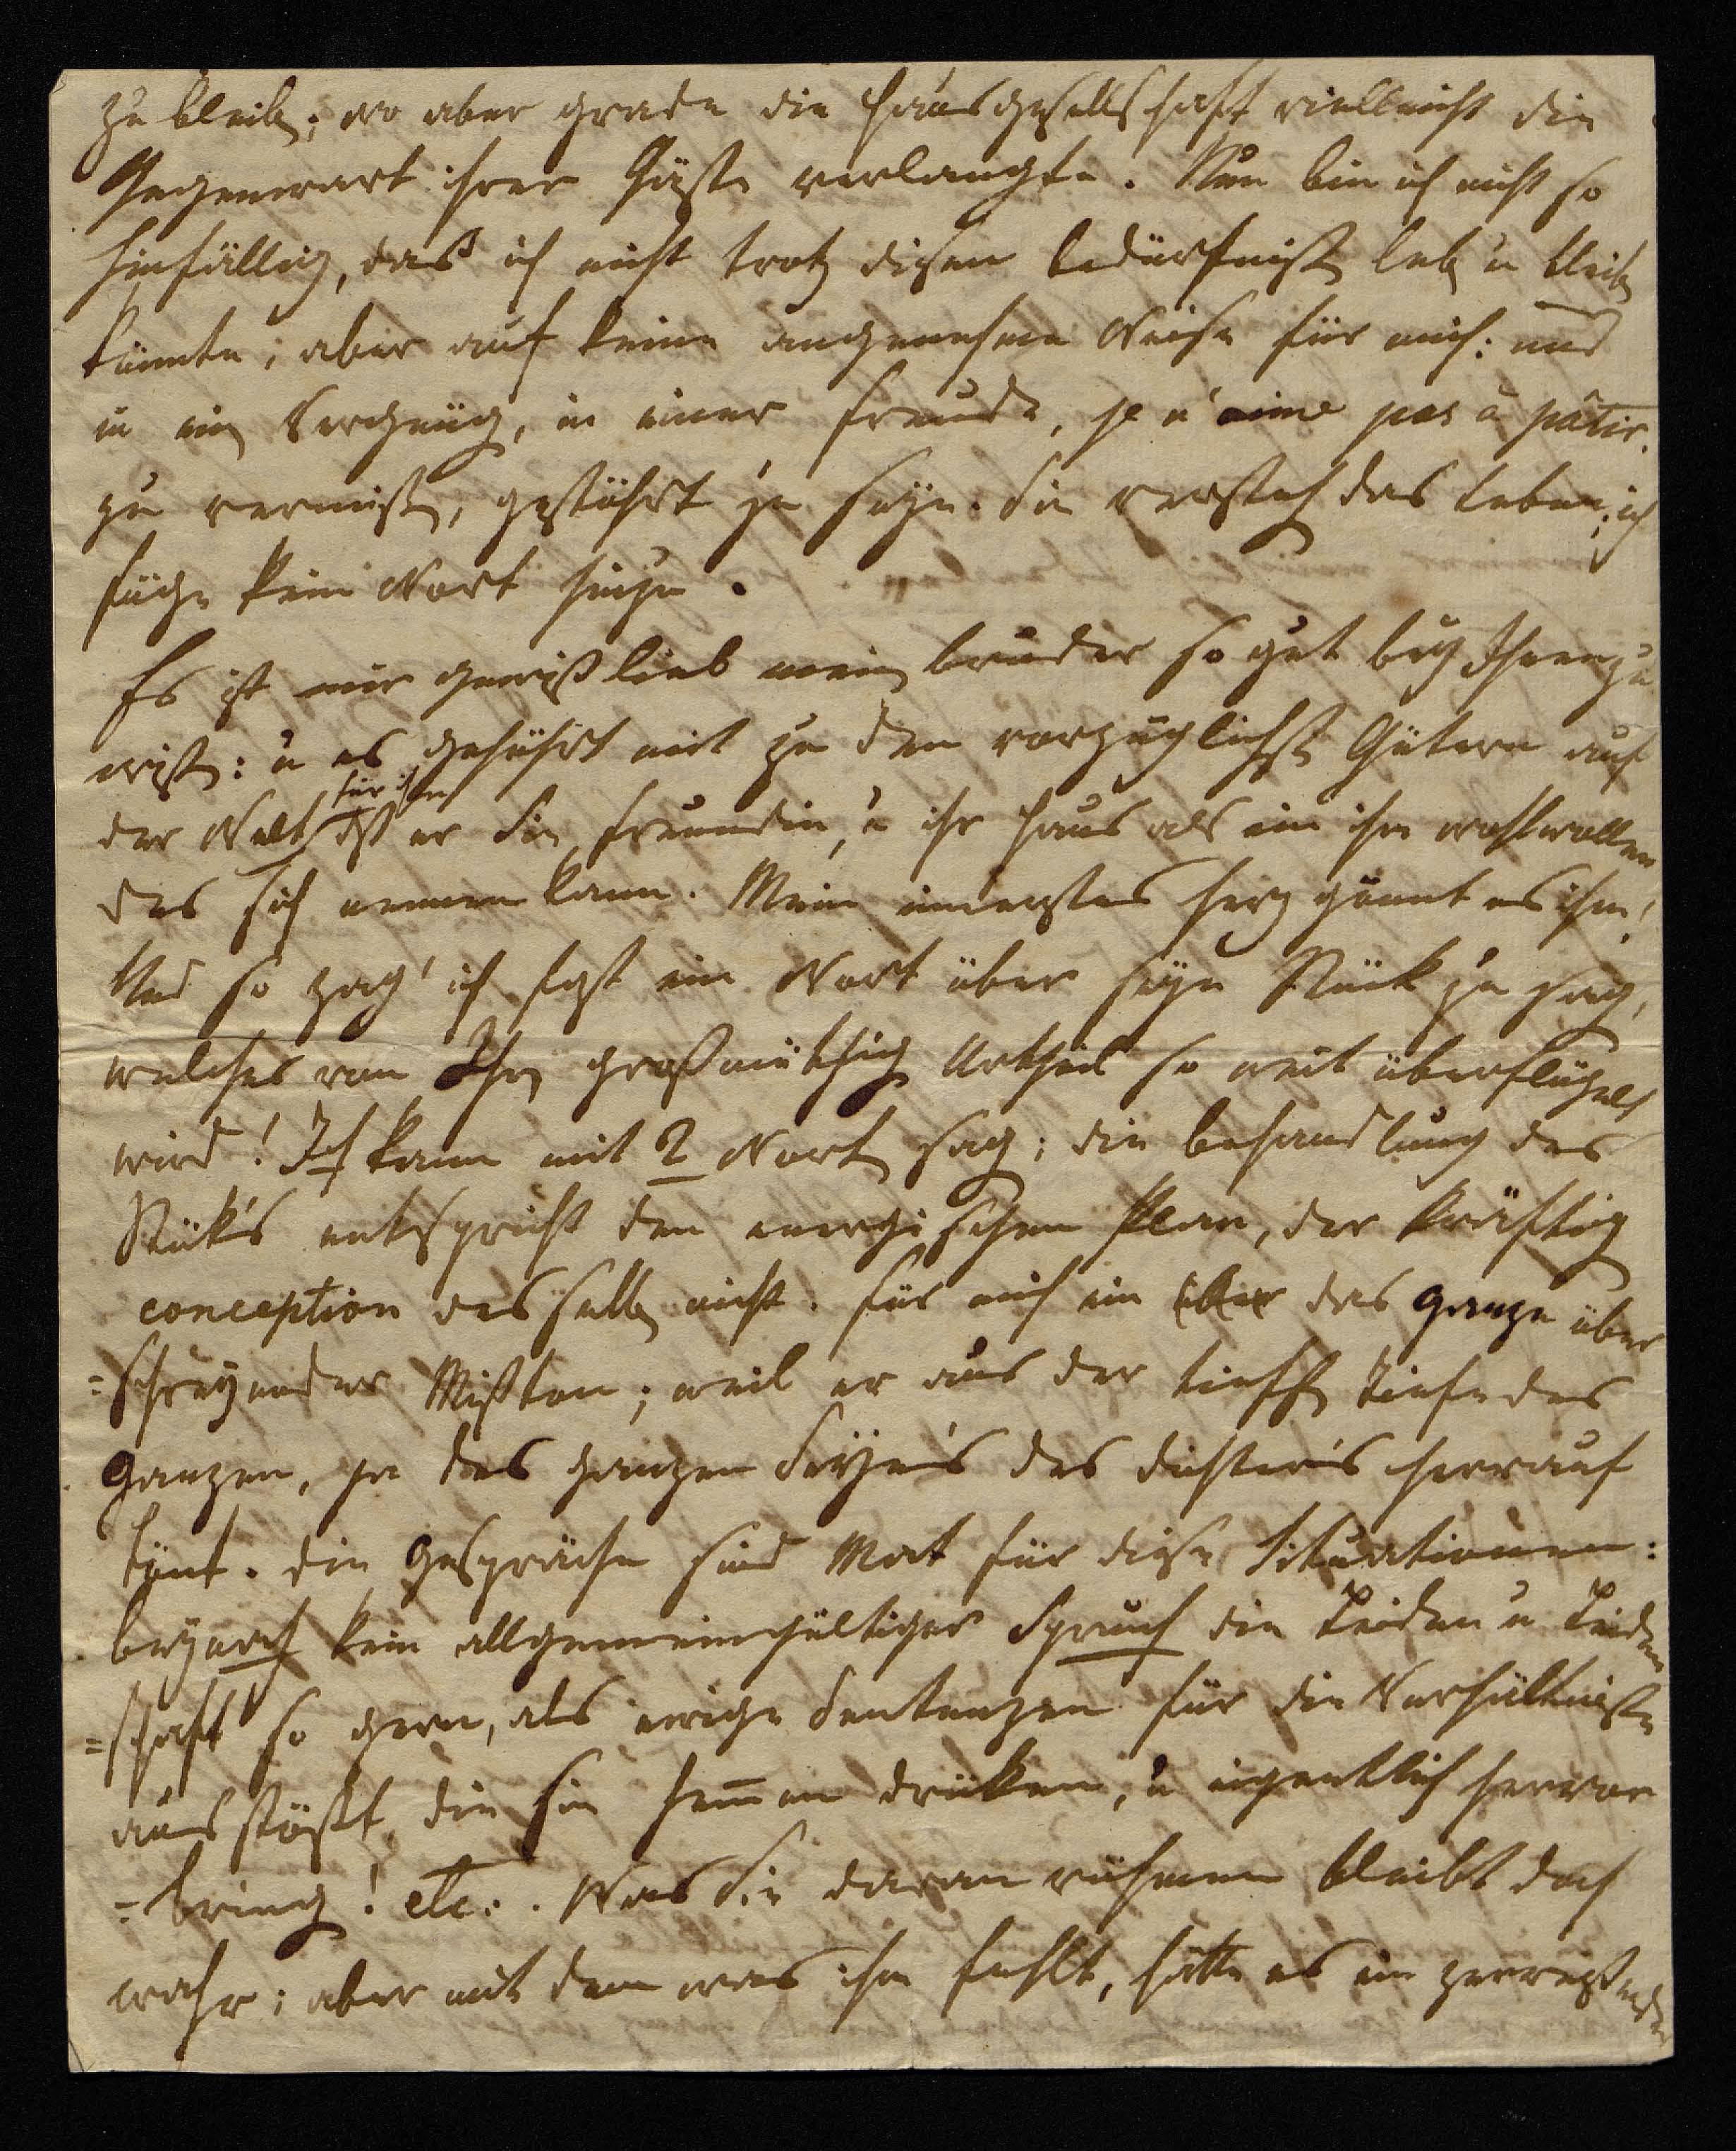 zu bleiben; wo aber grade die Hausgesellschaft vielleicht die
Gegenwart ihrer Gäste verlangte. Nun bin ich nicht so
hinfällig, daß ich nicht trotz diesen bedürfnißen leben u bleiben
könnte; aber auf keine angenehme Weise für mich: und
in ein Vergnügen, in einer Freude, je n'aime pas à pâtir.
zu vermißen, gestöhrt zu seyn. Sie verstehen das Leben; ich
füge kein Wort hinzu.
Es ist mir gewiß lieb meinen bruder so gut bey Ihnen zu
wißen: u es gehöhrt mit zu den vorzüglichsten Gütern auf
der Welt für ihn daß er Sie Freundin, u ihr Haus als ein ihm wohlwollen
des sich nennen kann. Mein innerstes Herz gönnt es ihm!
Und so zag' ich fast ein Wort über sein Stück zu sagen,
welches von Ihren großmüthigen Urtheil so weit überflügelt
wird! Ich kann mit 2 Worten sagen; die behandlung des
Stück's entspricht den energischen Plan, der kräftigen
conception desselben nicht. Für mich ein über das Ganze über
=schreyender Mißton; weil er aus der tiefsten Tiefe des
Ganzen, ja des ganzen Seyn's des dichter's herrauf
tönt. die Gespräche sind Mat für diese Situationen:
beynah kein allgemeingültiger Spruch die Leiden u Leiden
=schaft so gern, als ewige Sentenzen für die Verhältniße
ausstößt, die sie hem̅en drücken, u eigentlich hervor
=bringen! etc:. Was Sie daran rühmen bleibt doch
wahr; aber mit dem was ihm fehlt, hätte es ein zerreißendes